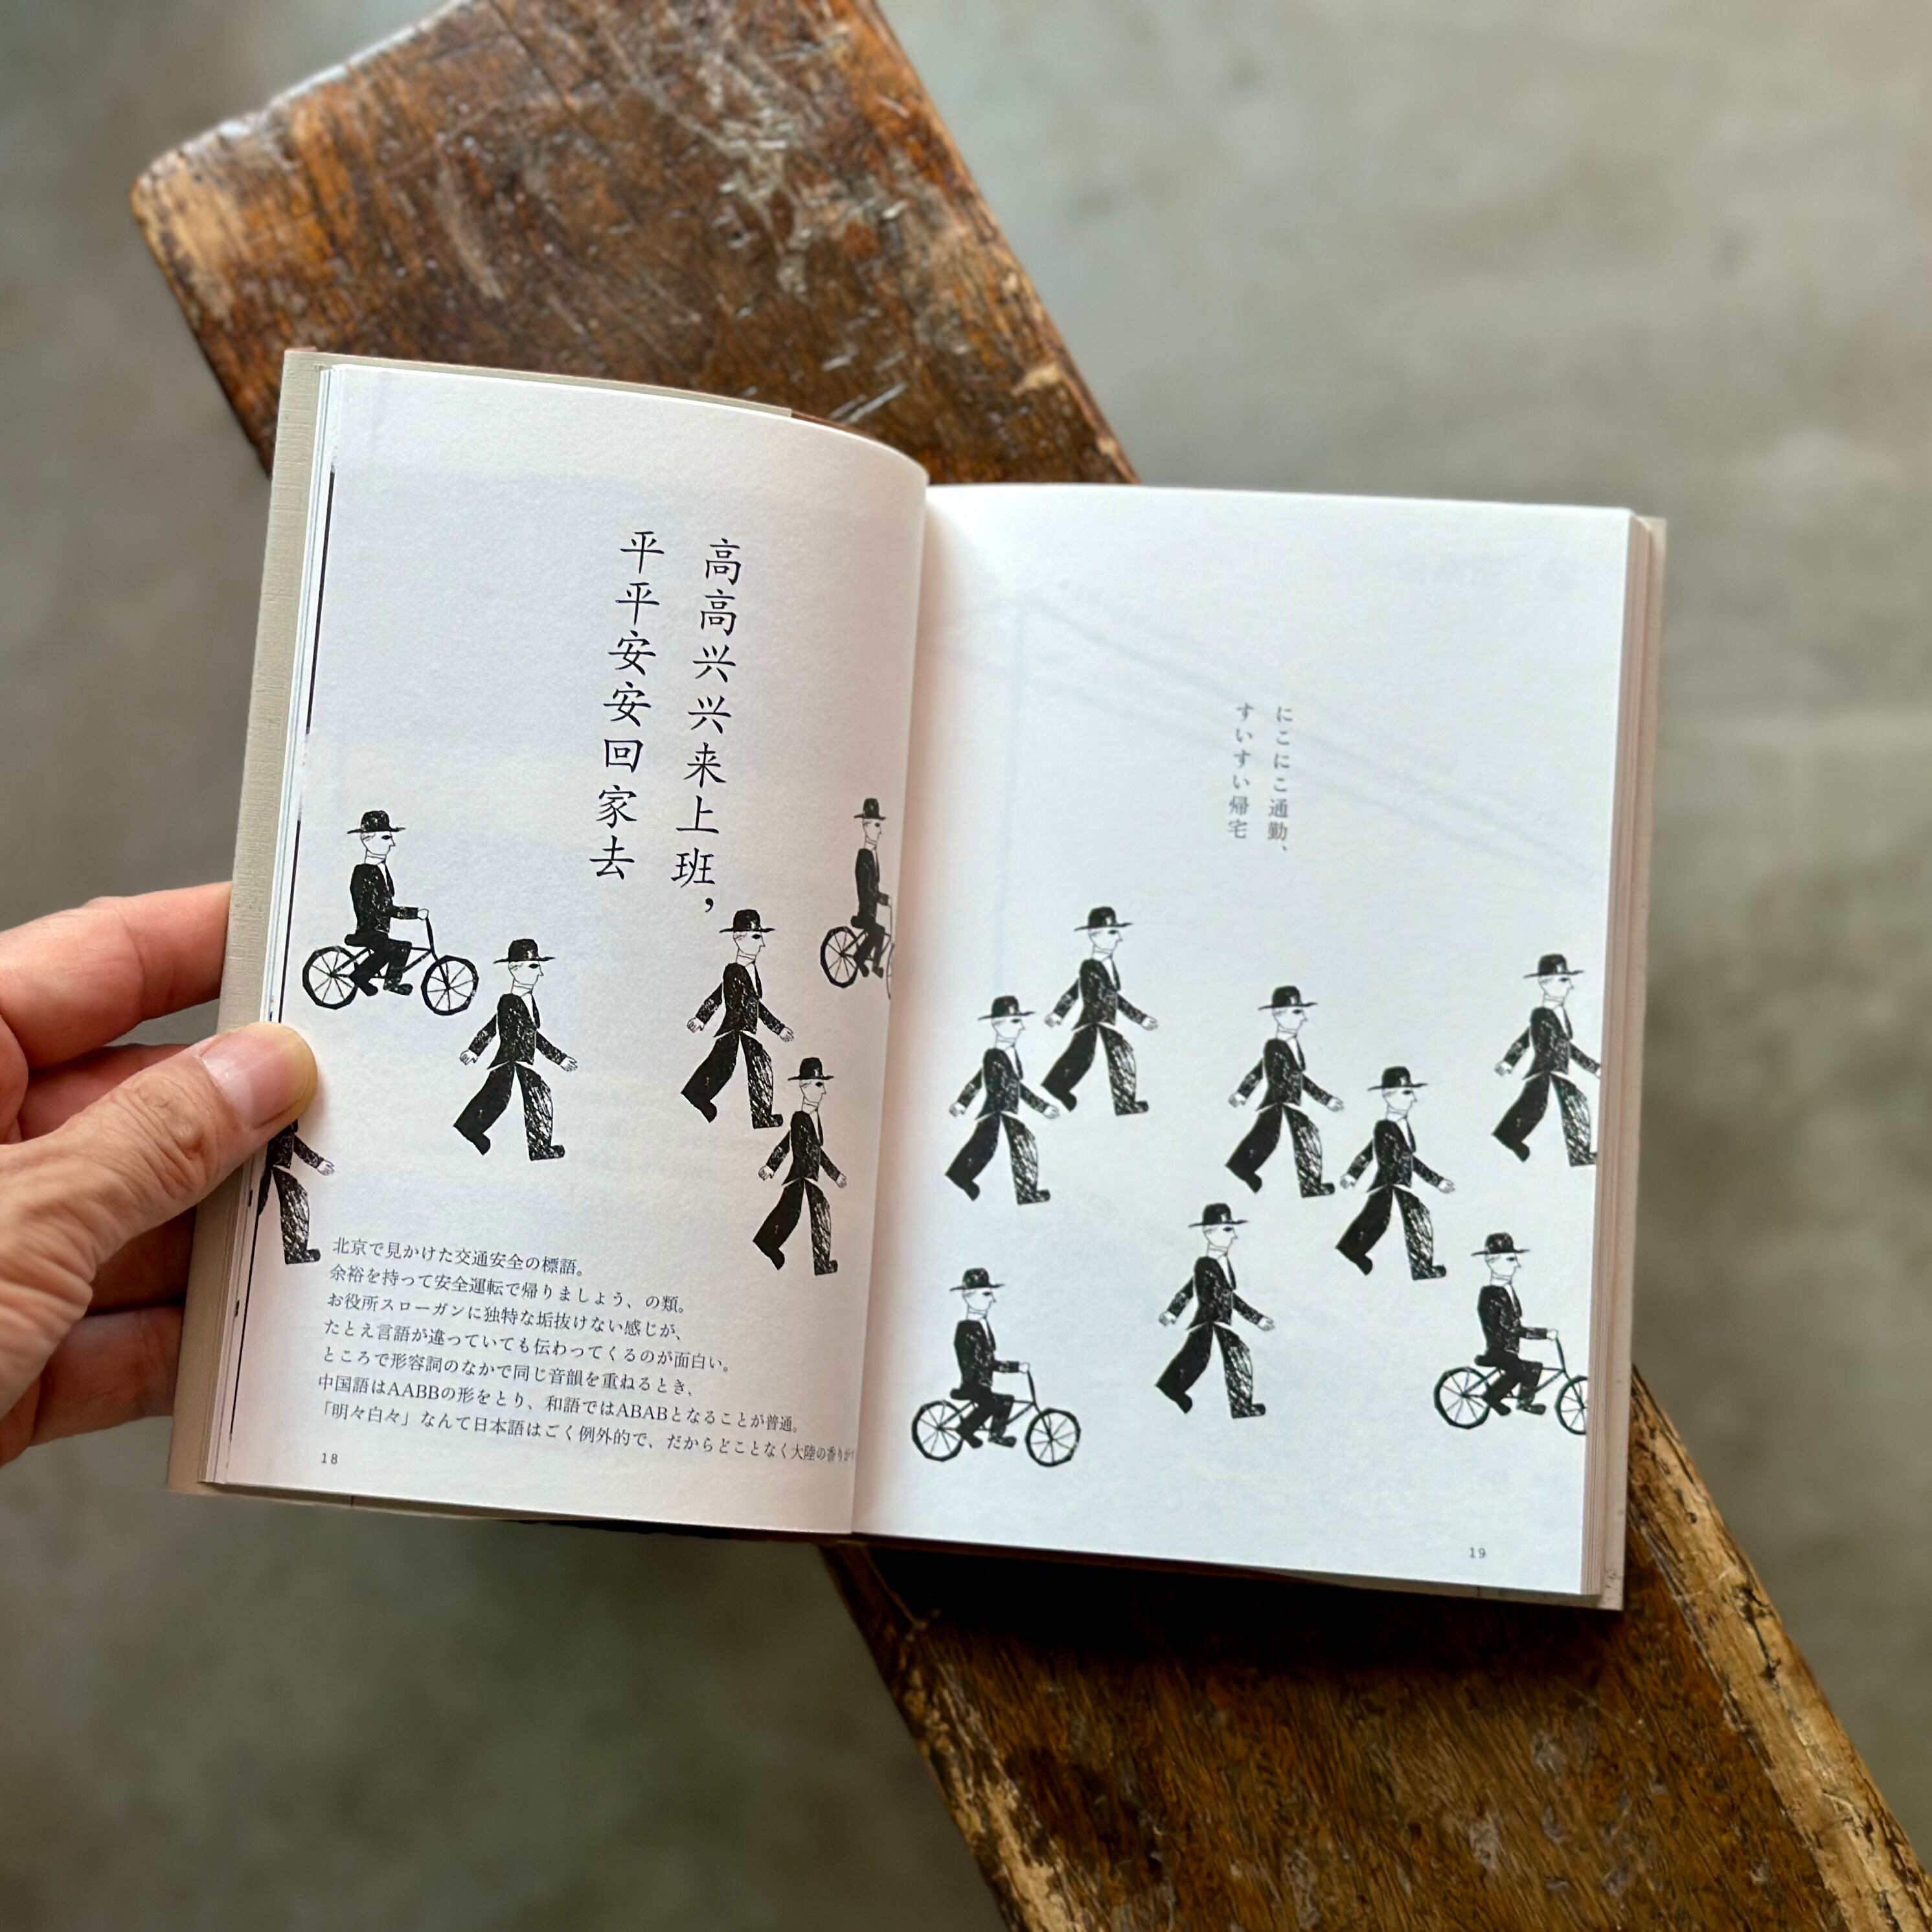 高高兴兴来上班，
平平安安回家去
北京で見かけた交通安全の標語。
余裕を持って安全運転で帰りましょう、の類。
お役所スローガンに独特な垢抜けない感じが、
たとえ言語が違っていても伝わってくるのが面白い。
ところで形容詞のなかで同じ音韻を重ねるとき、
中国語はAABBの形をとり、和語ではABABとなることが普通。
「明々白々」なんて日本語はごく例外的で、だからどことなく大陸の香りが
18
にこにこ通勤、
すいすい帰宅
19